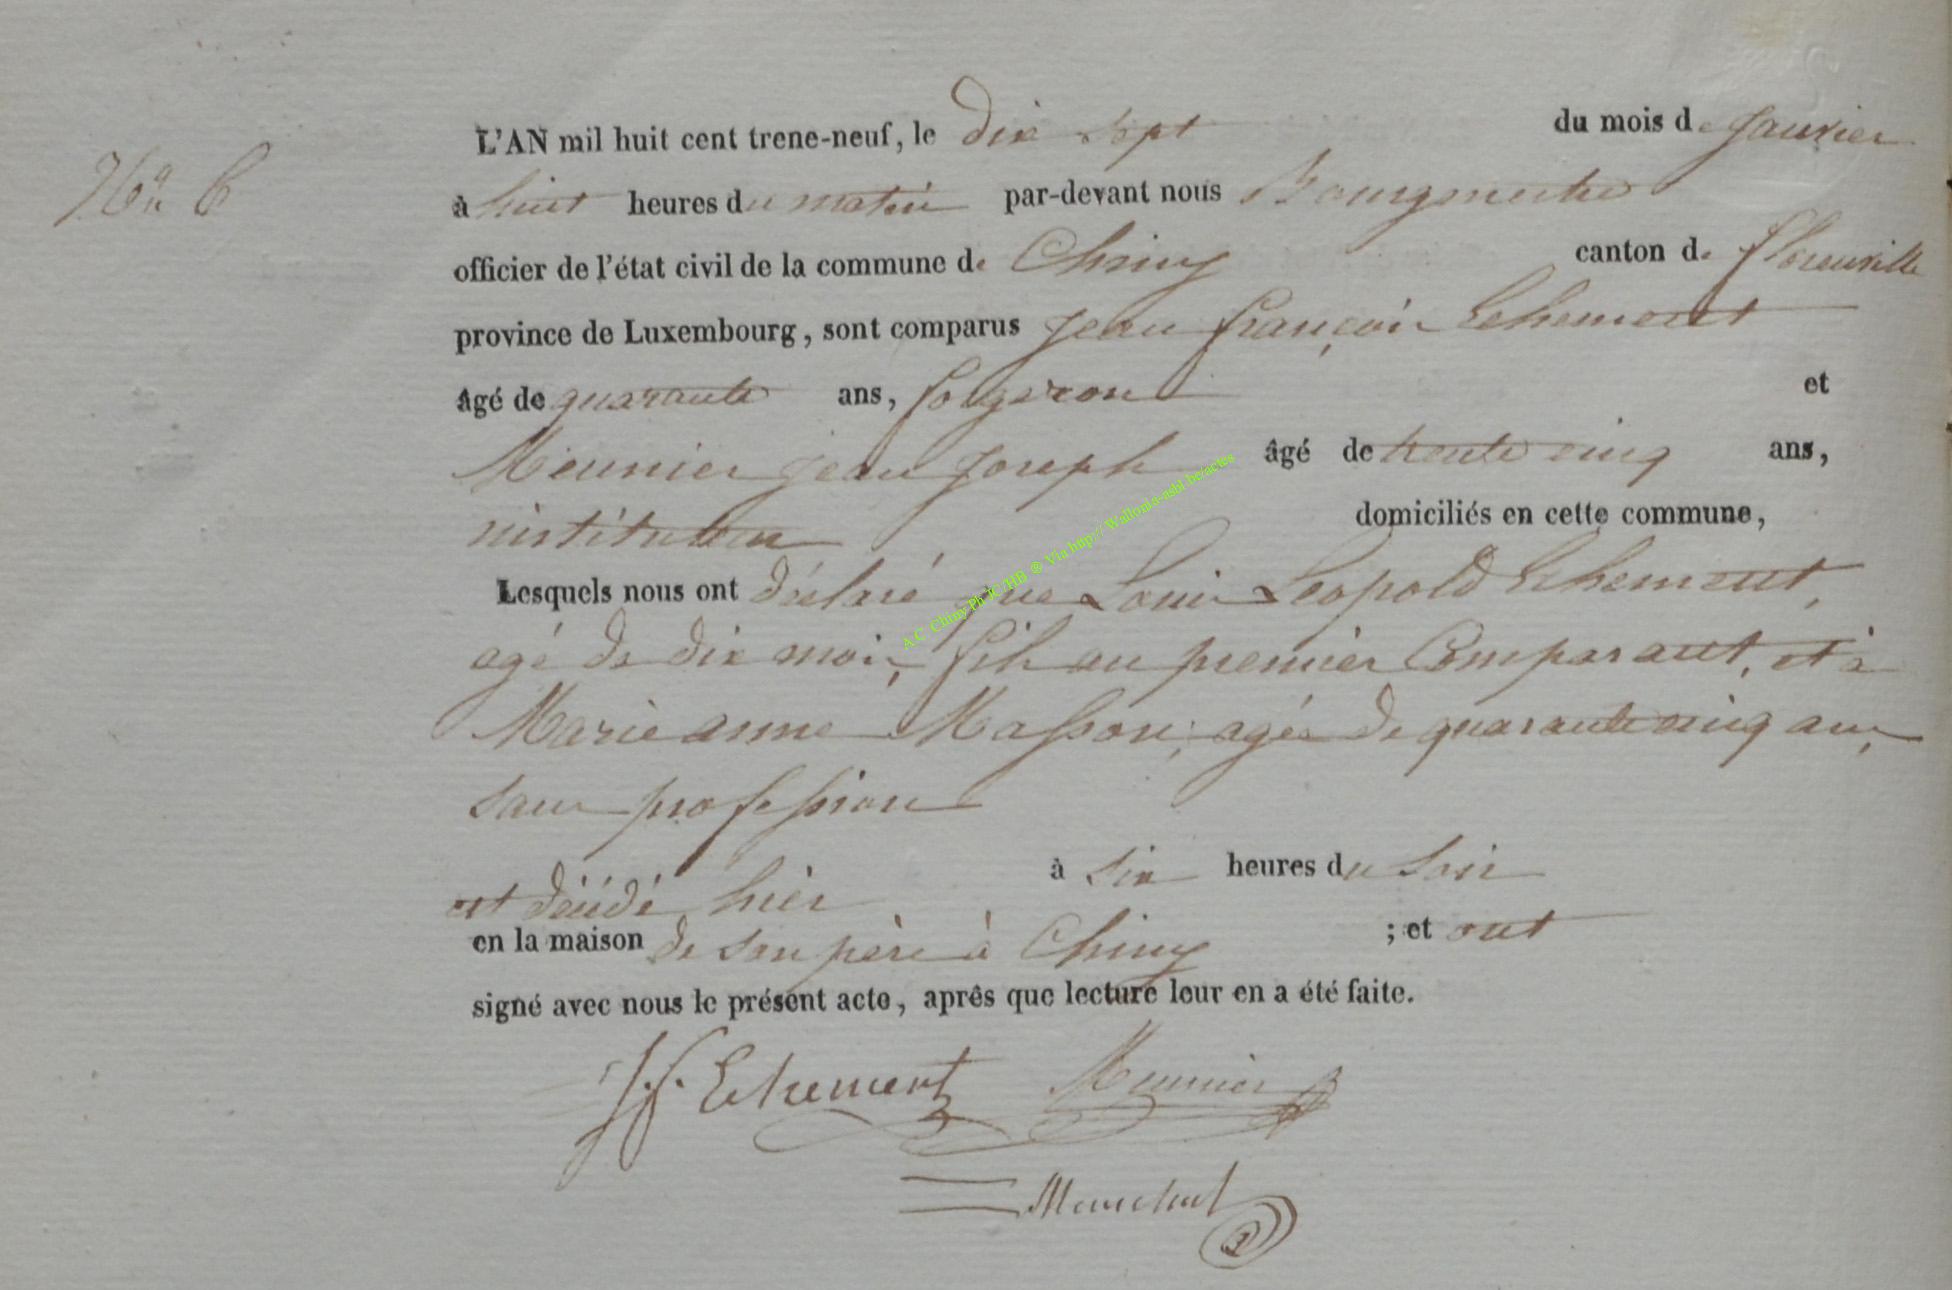 L'AN mil huit cent trene-neuf, le dix sept du mois de Janvier
Nº 6
à huit heures du matin par-devant nous Bourgmestre
officier de l'état civil de la commune de Chiny canton de florenville
province de Luxembourg, sont comparus jean françois Echement
âgé de quarante ans, forgeron et
Meunier jean joseph âgé de trente cinq ans,
instituteur domiciliés en cette commune,
Lesquels nous ont déclaré que Louis Leopold Echement,
agé de dix mois, fils au premier Comparant, et à
Marie anne Masson, agée de quarante cinq ans,
sans profession
est décédé hier à six heures du soir
en la maison de son père à Chiny ; et ont
signé avec nous le présent acte, après que lecture leur en a été faite.
J.f. Echement Meunier
Marechal
A.C Chiny Ph JC/HB ® Via http://Wallonia-asbl.be/actes